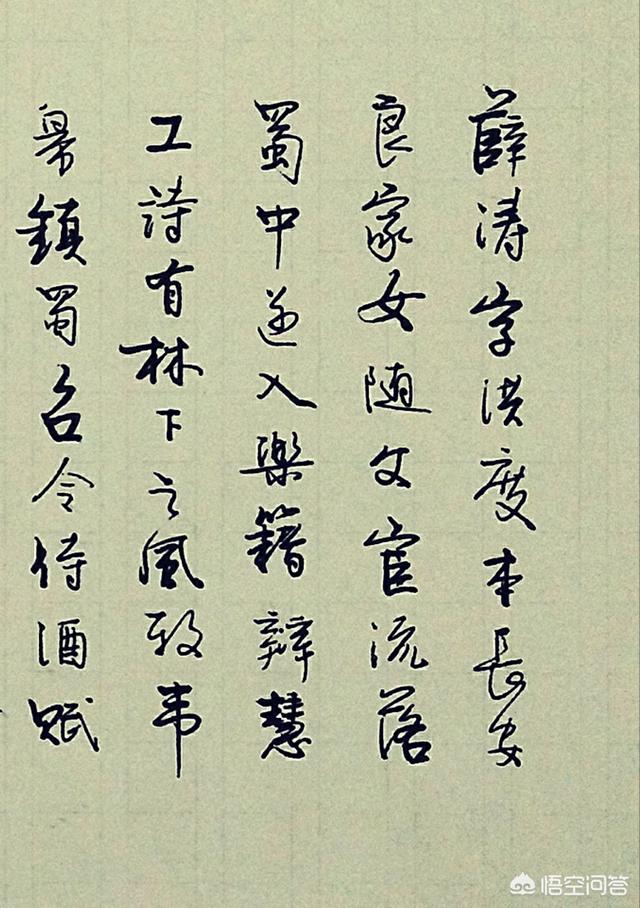 薛涛字洪度本長安
良家女随父宦流落
蜀中遂入樂籍辩慧
工詩有林下之風致韦
皋鎮蜀召令侍酒赋
悟空问答